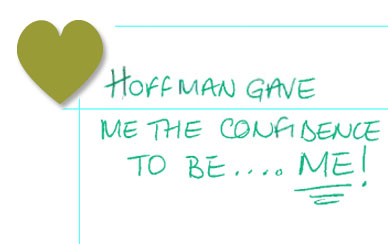 HOFFMAN GAVE
ME THE CONFIDENCE
TO BE.... ME!